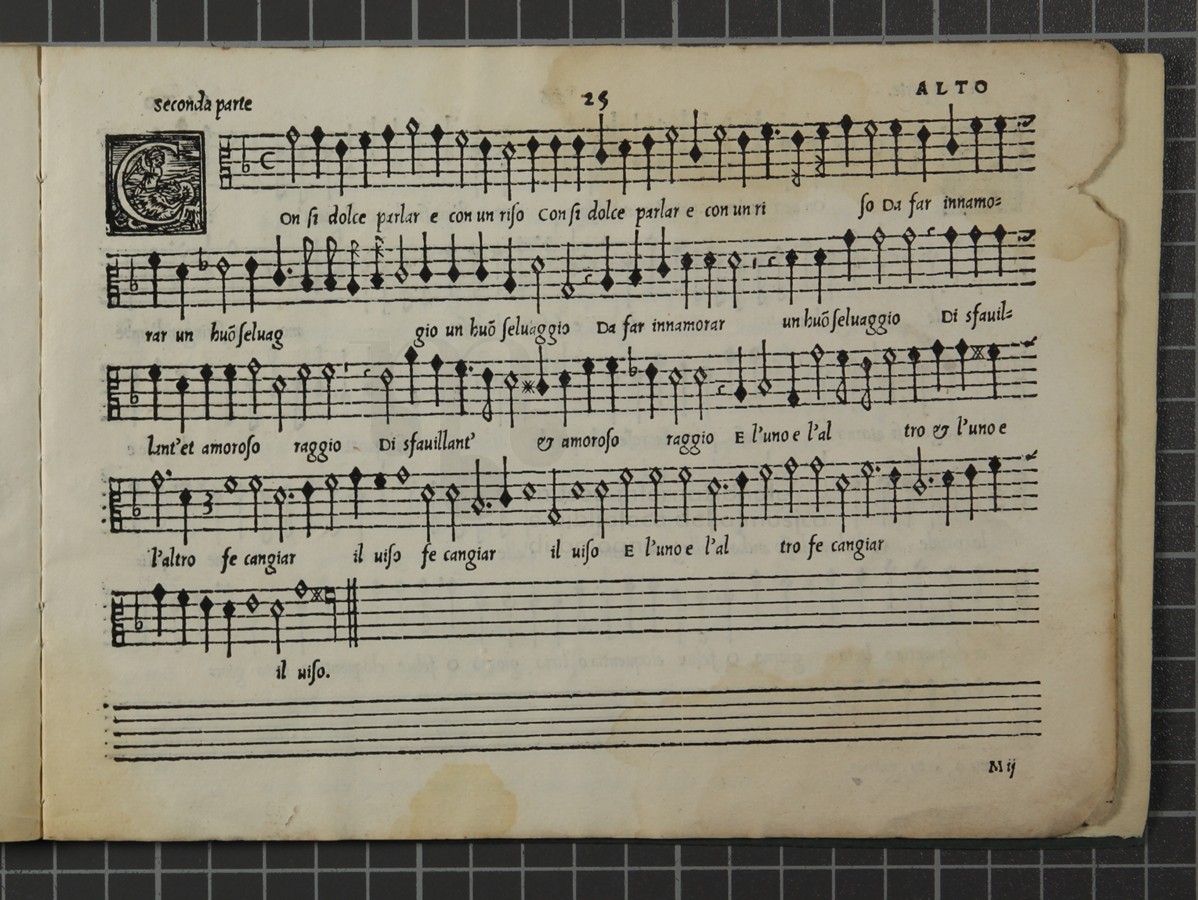 Seconda parte 25 ALTO
COn ſi dolce parlar e con un riſo Con ſi dolce parlar e con un ri ſo Da far innamo=
rar un huõ ſeluag gio un huõ ſeluaggio Da far innamorar un huõ ſeluaggio Di sfauil=
lant'et amoroſo raggio Di sfauillant' & amoroſo raggio E l'uno e l'al tro & l'uno e
l'altro fe cangiar il uiſo fe cangiar il uiſo E l'uno e l'al tro fe cangiar
il uiſo.
M ij